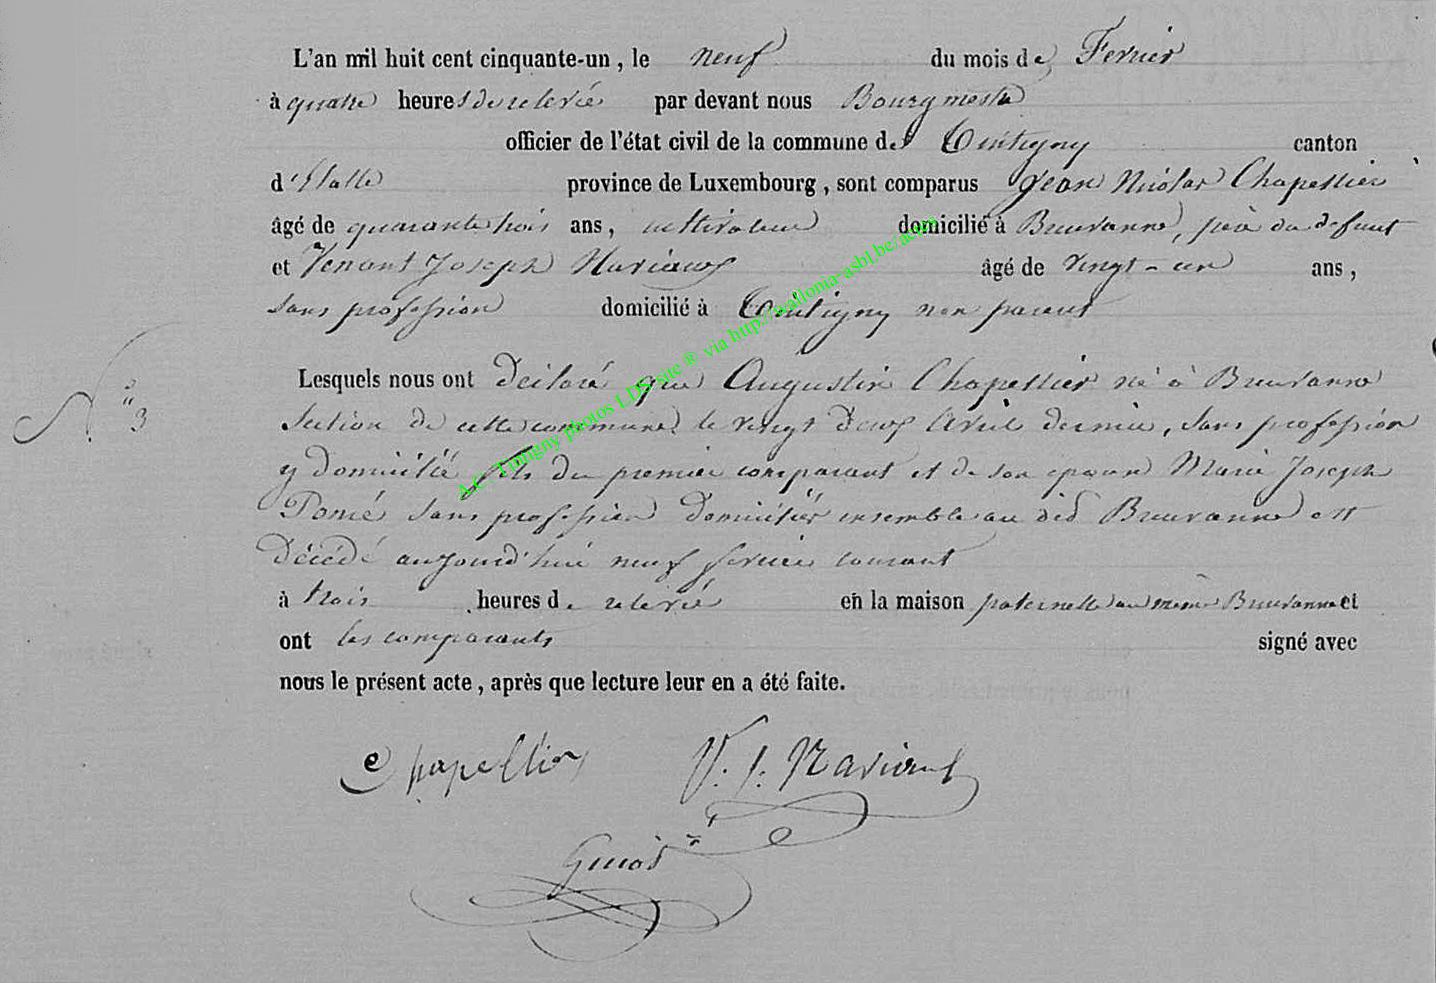 L'an mil huit cent cinquante-un, le neuf du mois de Fevrier
à quatre heures de relevée par devant nous Bourgmestre
officier de l'état civil de la commune de Tintigny canton
d'Etalle province de Luxembourg, sont comparus Jean Nicolas Chapellier
âgé de quarante trois ans, cultivateur domicilié à Breuvanne, père du défunt
et Venant Joseph Mariaux âgé de vingt-un ans,
sans profession domicilié à Tintigny non parent
Lesquels nous ont déclaré que Augustin Chapellier né à Breuvanne
N° 3
section de cette commune le vingt deux Avril dernier, sans profession
y domicilié fils du premier comparant et de son épouse Marie Joseph
Poncé sans profession domiciliés ensemble au dit Breuvanne est
décédé aujourd'hui neuf fevrier courant
à trois heures de relevée en la maison paternelle au même Breuvanne et
ont les comparants signé avec
nous le présent acte, après que lecture leur en a été faite.
Chapellier V. J. Mariaux
A.C. Tintigny photos LDS site ® via http://wallonia-asbl.be/actes